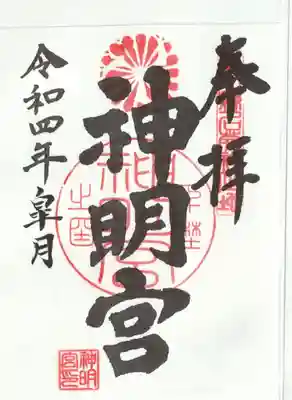 奉拝
神明宮
令和四年皐月
神明宮印